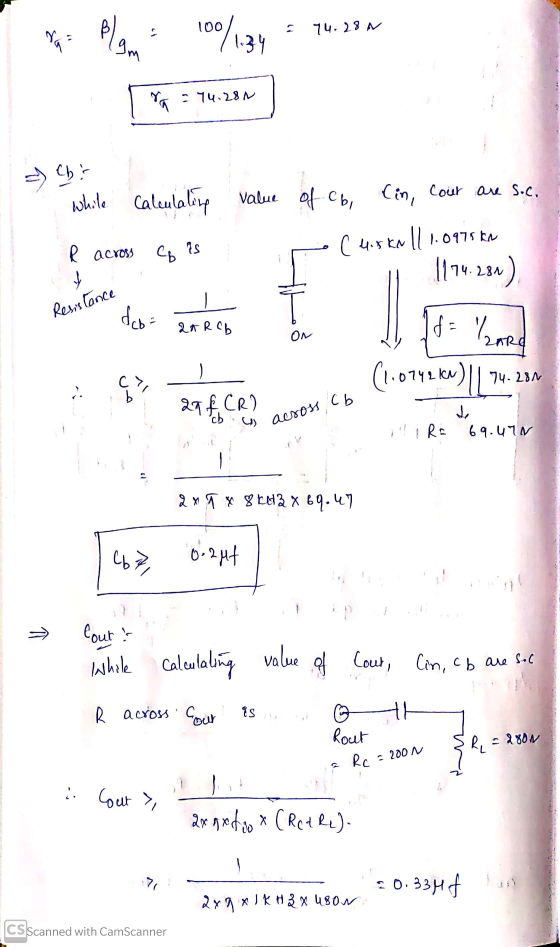 rπ = β/gm = 100/1.34 = 74.28Ω
rπ = 74.28Ω
⇒ Cb :-
While Calculating value of Cb, Cin, Cout are S.C.
R across Cb is
↓
Resistance
(4.5KΩ || 1.0975KΩ || 74.28Ω)
0Ω
fcb = 1/2πRCb
f = 1/2πRC
(1.0742KΩ) || 74.28Ω
↓
R = 69.47Ω
∴ Cb ≥ 1/2πfcb(R) across Cb
= 1/2×π×8KHz×69.47
Cb ≥ 0.2μf
⇒ Cout :-
While Calculating value of Cout, Cin, Cb are S.C
R across Cout is
Rout
= RC = 200Ω
RL = 280Ω
∴ Cout ≥ 1/2×π×f×(RC+RL).
≥ 1/2×π×1KHz×480Ω = 0.33μf
CS Scanned with CamScanner